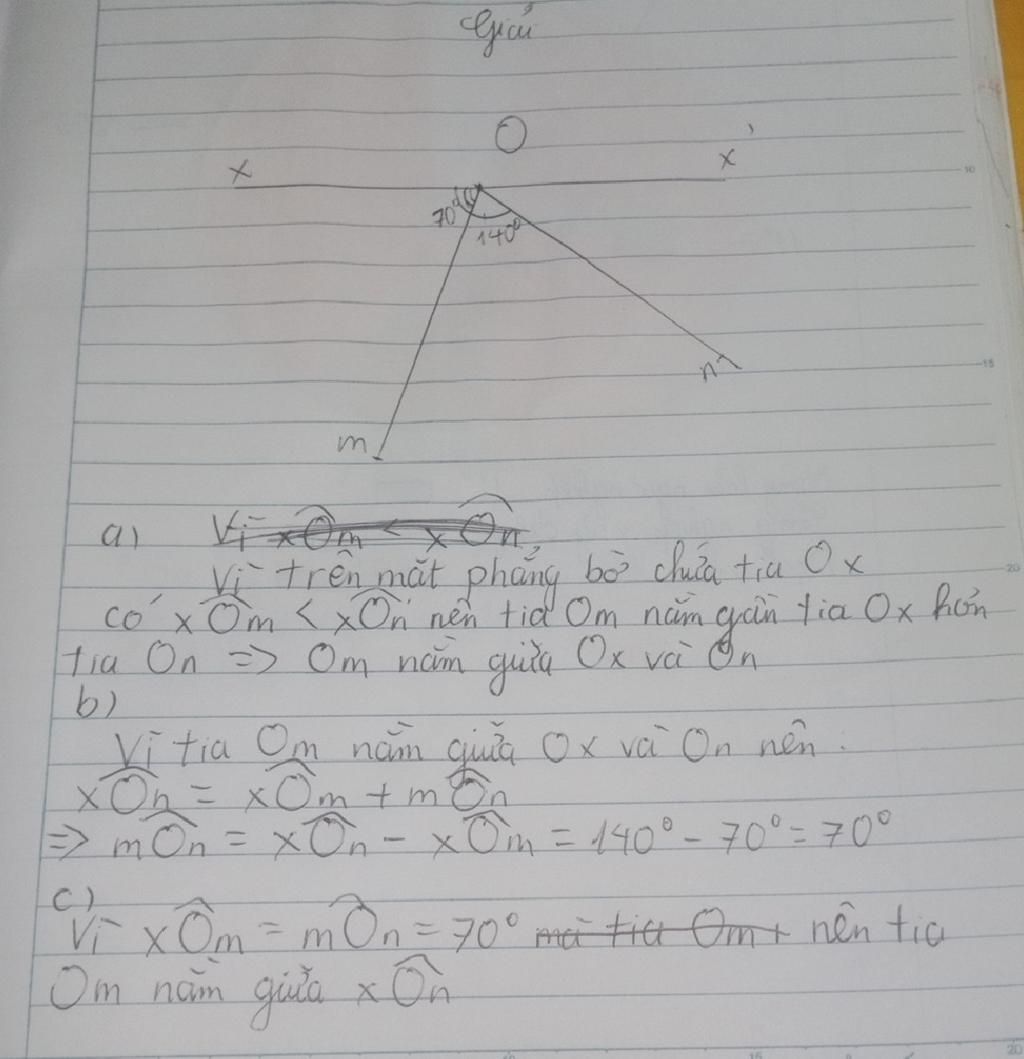 Giải
O
x
x'
70°
140°
m
n
a) Vì xÔm < xÔn,
Vì trên mặt phẳng bờ chứa tia Ox
có xÔm < xÔn nên tia Om nằm gần tia Ox hơn
tia On => Om nằm giữa Ox và On
b)
Vì tia Om nằm giữa Ox và On nên :
xÔn = xÔm + mÔn
=> mÔn = xÔn - xÔm = 140° - 70° = 70°
c)
Vì xÔm = mÔn = 70° mà tia Om nên tia
Om nằm giữa xÔn